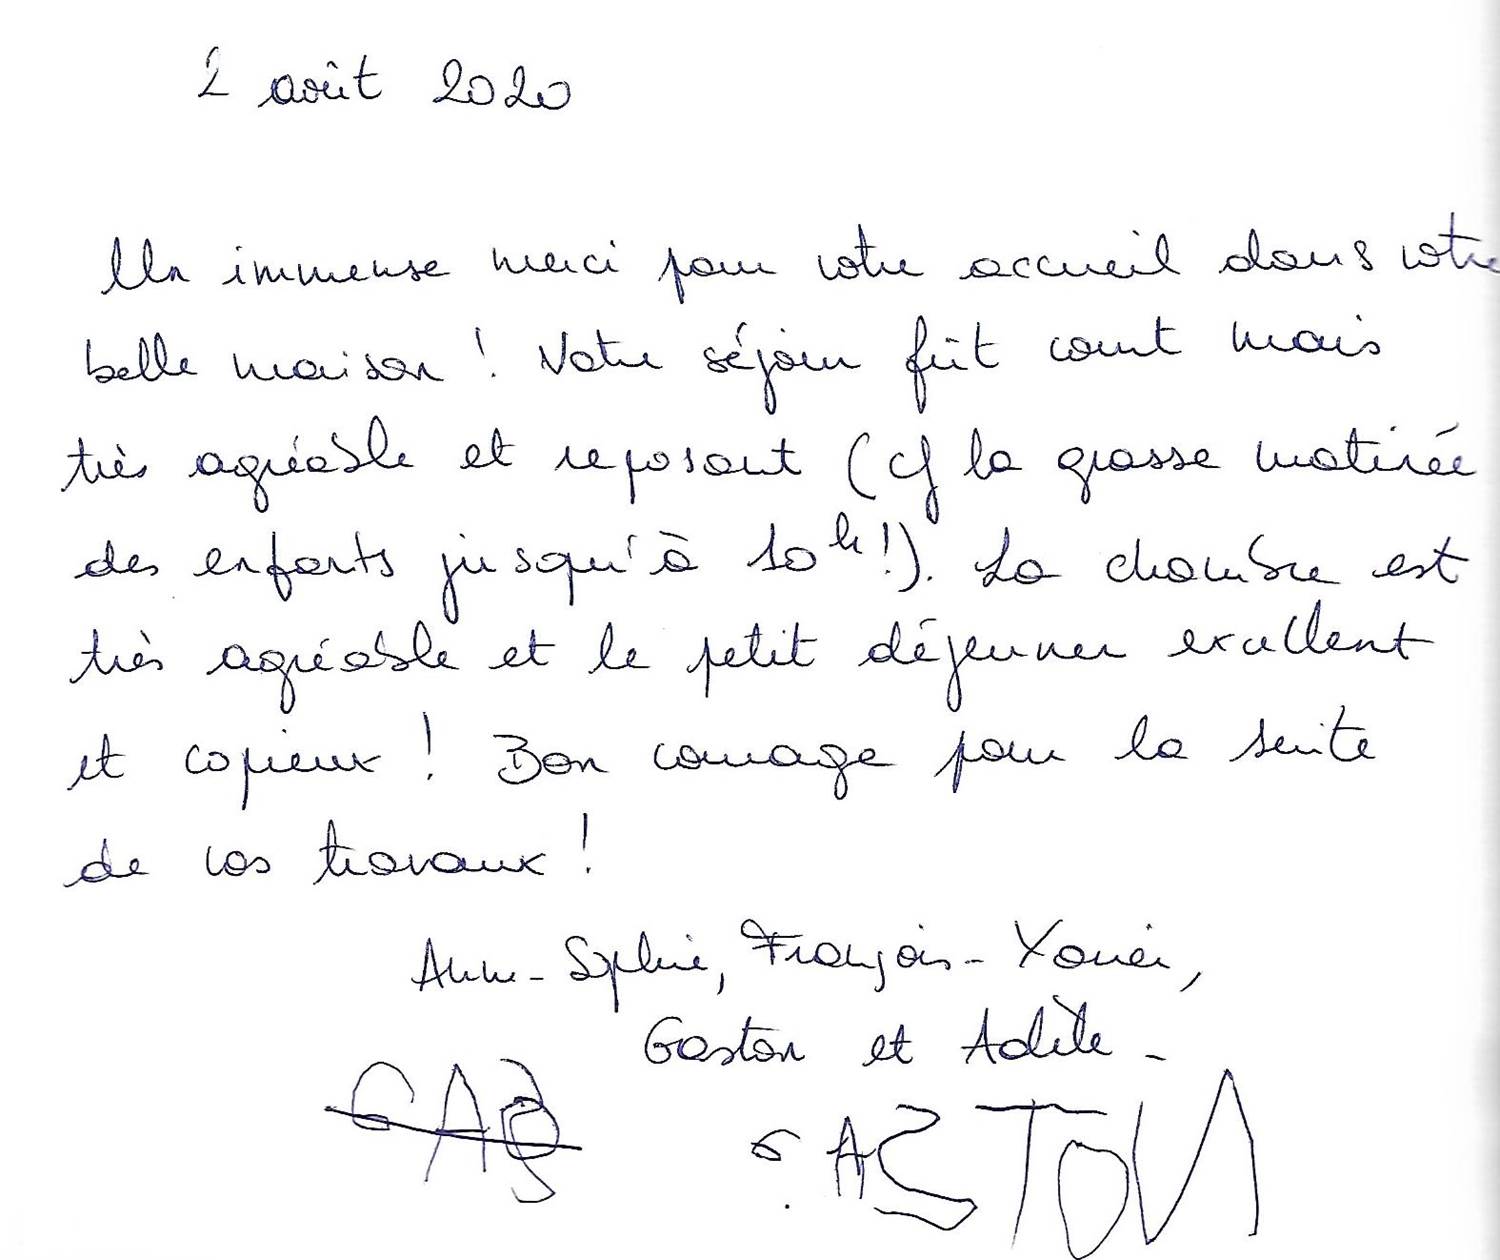 2 août 2020
Un immense merci pour votre accueil dans votre
belle maison ! Notre séjour fût court mais
très agréable et reposant (cf la grasse matinée
des enfants jusqu'à 10h!). La chambre est
très agréable et le petit déjeuner excellent
et copieux ! Bon courage pour la suite
de vos travaux !
Anne-Sophie, François-Xavier,
Gaston et Adèle -
GASTON